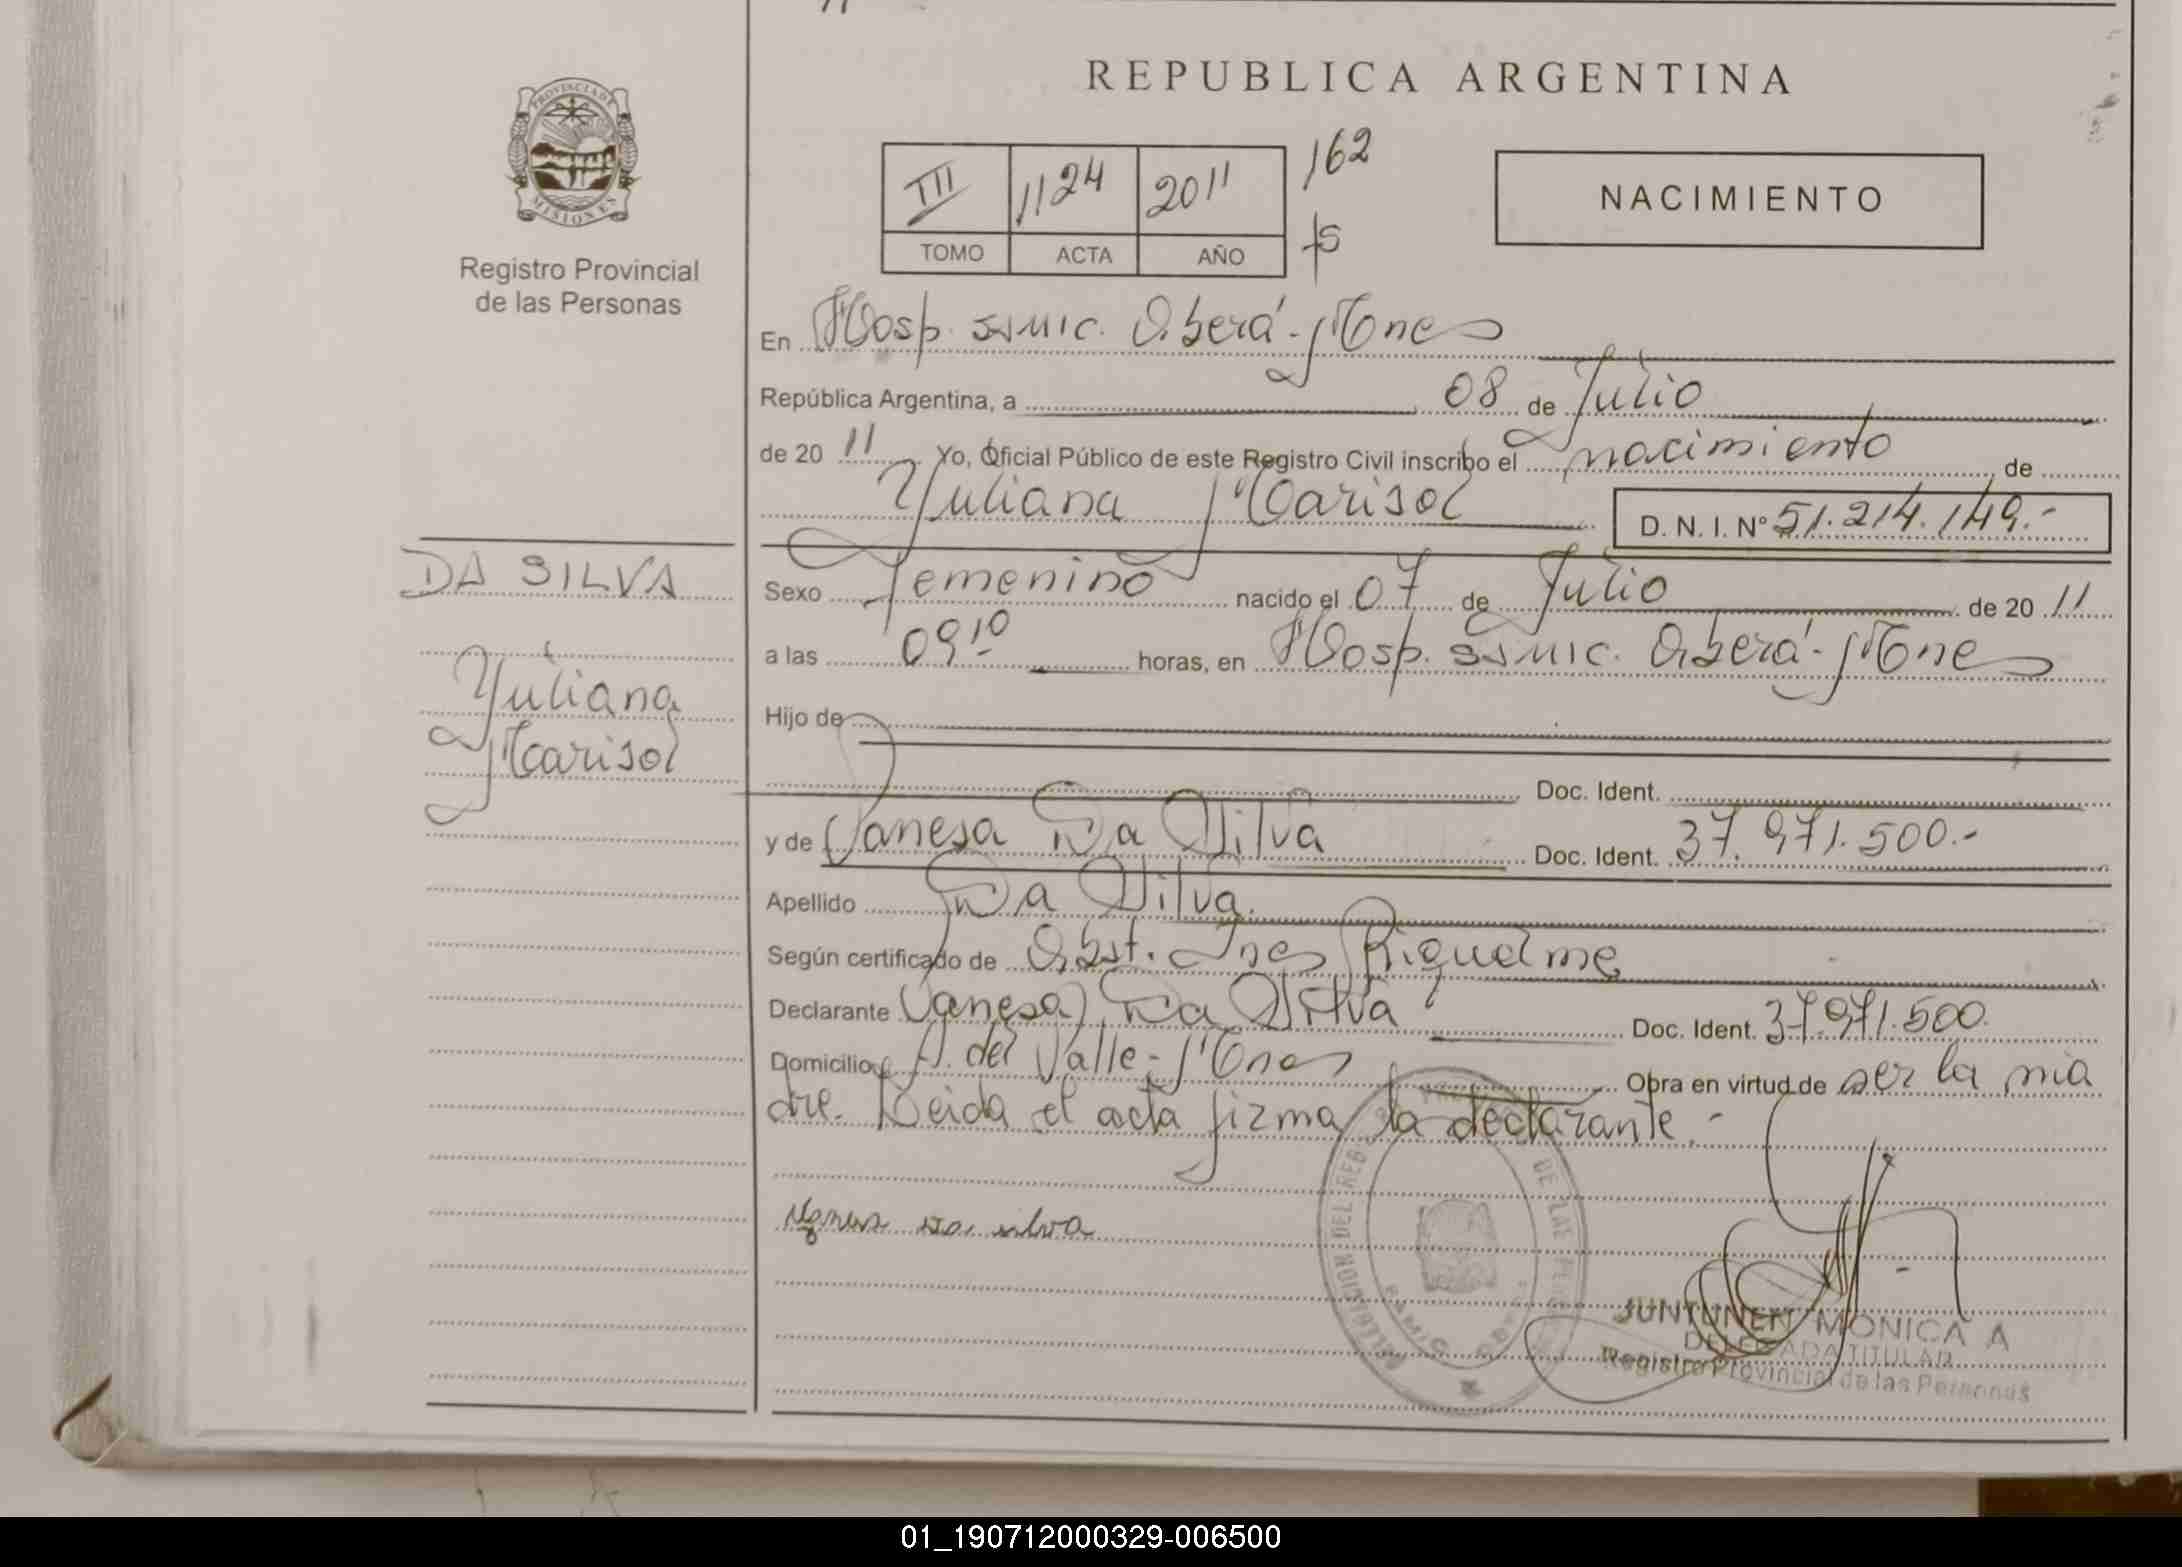 REPUBLICA ARGENTINA
PROVINCIA DE
MISIONES
Registro Provincial
de las Personas
III 1124 2011 162
TOMO ACTA AÑO fs
NACIMIENTO
En Hosp. SSMIC. Oberá - Mnes
República Argentina, a 08 de Julio
de 20 11 Yo, Oficial Público de este Registro Civil inscribo el nacimiento de
Yuliana Marisol D. N. I. Nº 51.214.149.-
DA SILVA
Yuliana
Marisol
Sexo Femenino nacido el 07 de Julio de 20 11
a las 09 10 horas, en Hosp. SSMIC. Oberá - Mnes
Hijo de
Doc. Ident.
y de Vanesa Da Silva Doc. Ident. 37.971.500.-
Apellido Da Silva.
Según certificado de Obst. Ines Riquelme
Declarante Vanesa Da Silva Doc. Ident. 37.971.500.
Domicilio A. del Valle - Mnes Obra en virtud de ser la ma
dre. Leida el acta firma la declarante.-
da silva
DELEGACION DEL REG DE LAS PER
JUNTUNEN MONICA A
DELEGADA TITULAR
Registro Provincial de las Personas
01_190712000329-006500